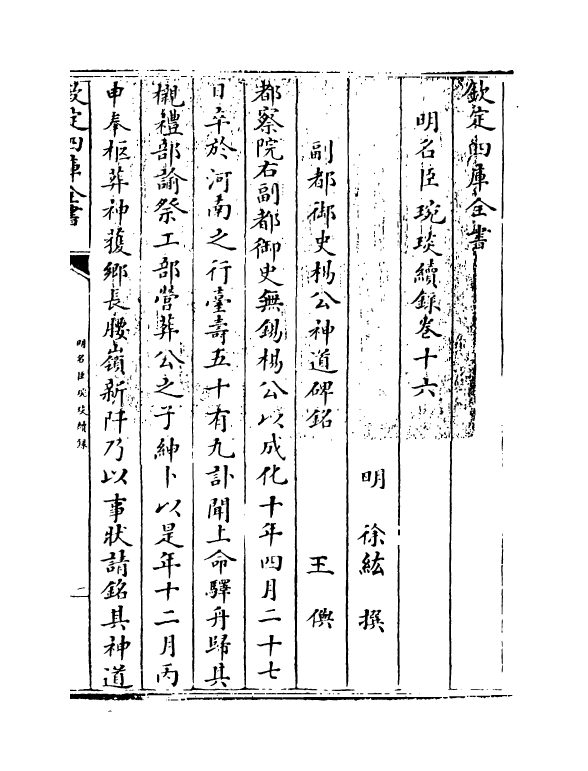 欽定四庫全書
明名臣琬琰續錄卷十六
明 徐紘 撰
副都御史楊公神道碑銘 王㒜
都察院右副都御史無錫楊公以成化十年四月二十七
日卒於河南之行臺壽五十有九訃聞上命驛舟歸其
櫬禮部諭祭工部營葬公之子紳卜以是年十二月丙
申奉柩葬神護鄉長腰嶺新阡乃以事狀請銘其神道
欽定四庫全書
明名臣琬琰續錄